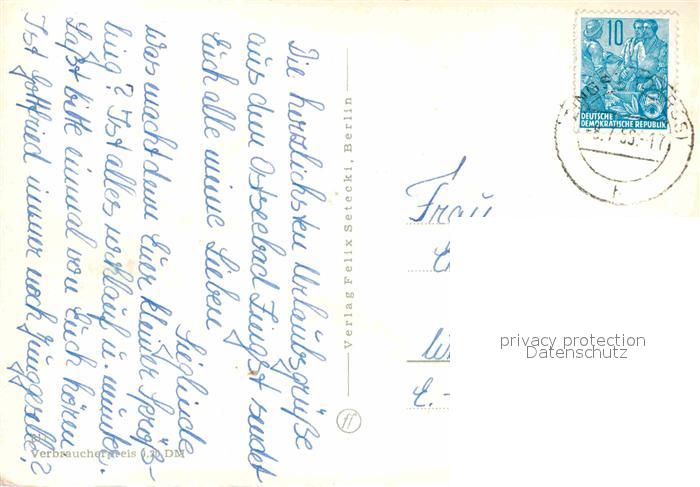 Die herzlichsten Urlaubsgrüße
aus dem Ostseebad Zingst sendet
Euch alle meine Lieben
Sieglinde
Was macht denn Euer kleiner Spröß-
ling? Ist alles wohlauf u. munter.
Laßt bitte einmal von Euch hören
Ist Gottfried immer noch Junggeselle?
Verbraucherpreis 0,20 DM
Verlag Felix Setecki, Berlin
ff
10
DEUTSCHE
DEMOKRATISCHE REPUBLIK
ZINGST
Frau
E.-
privacy protection
Datenschutz